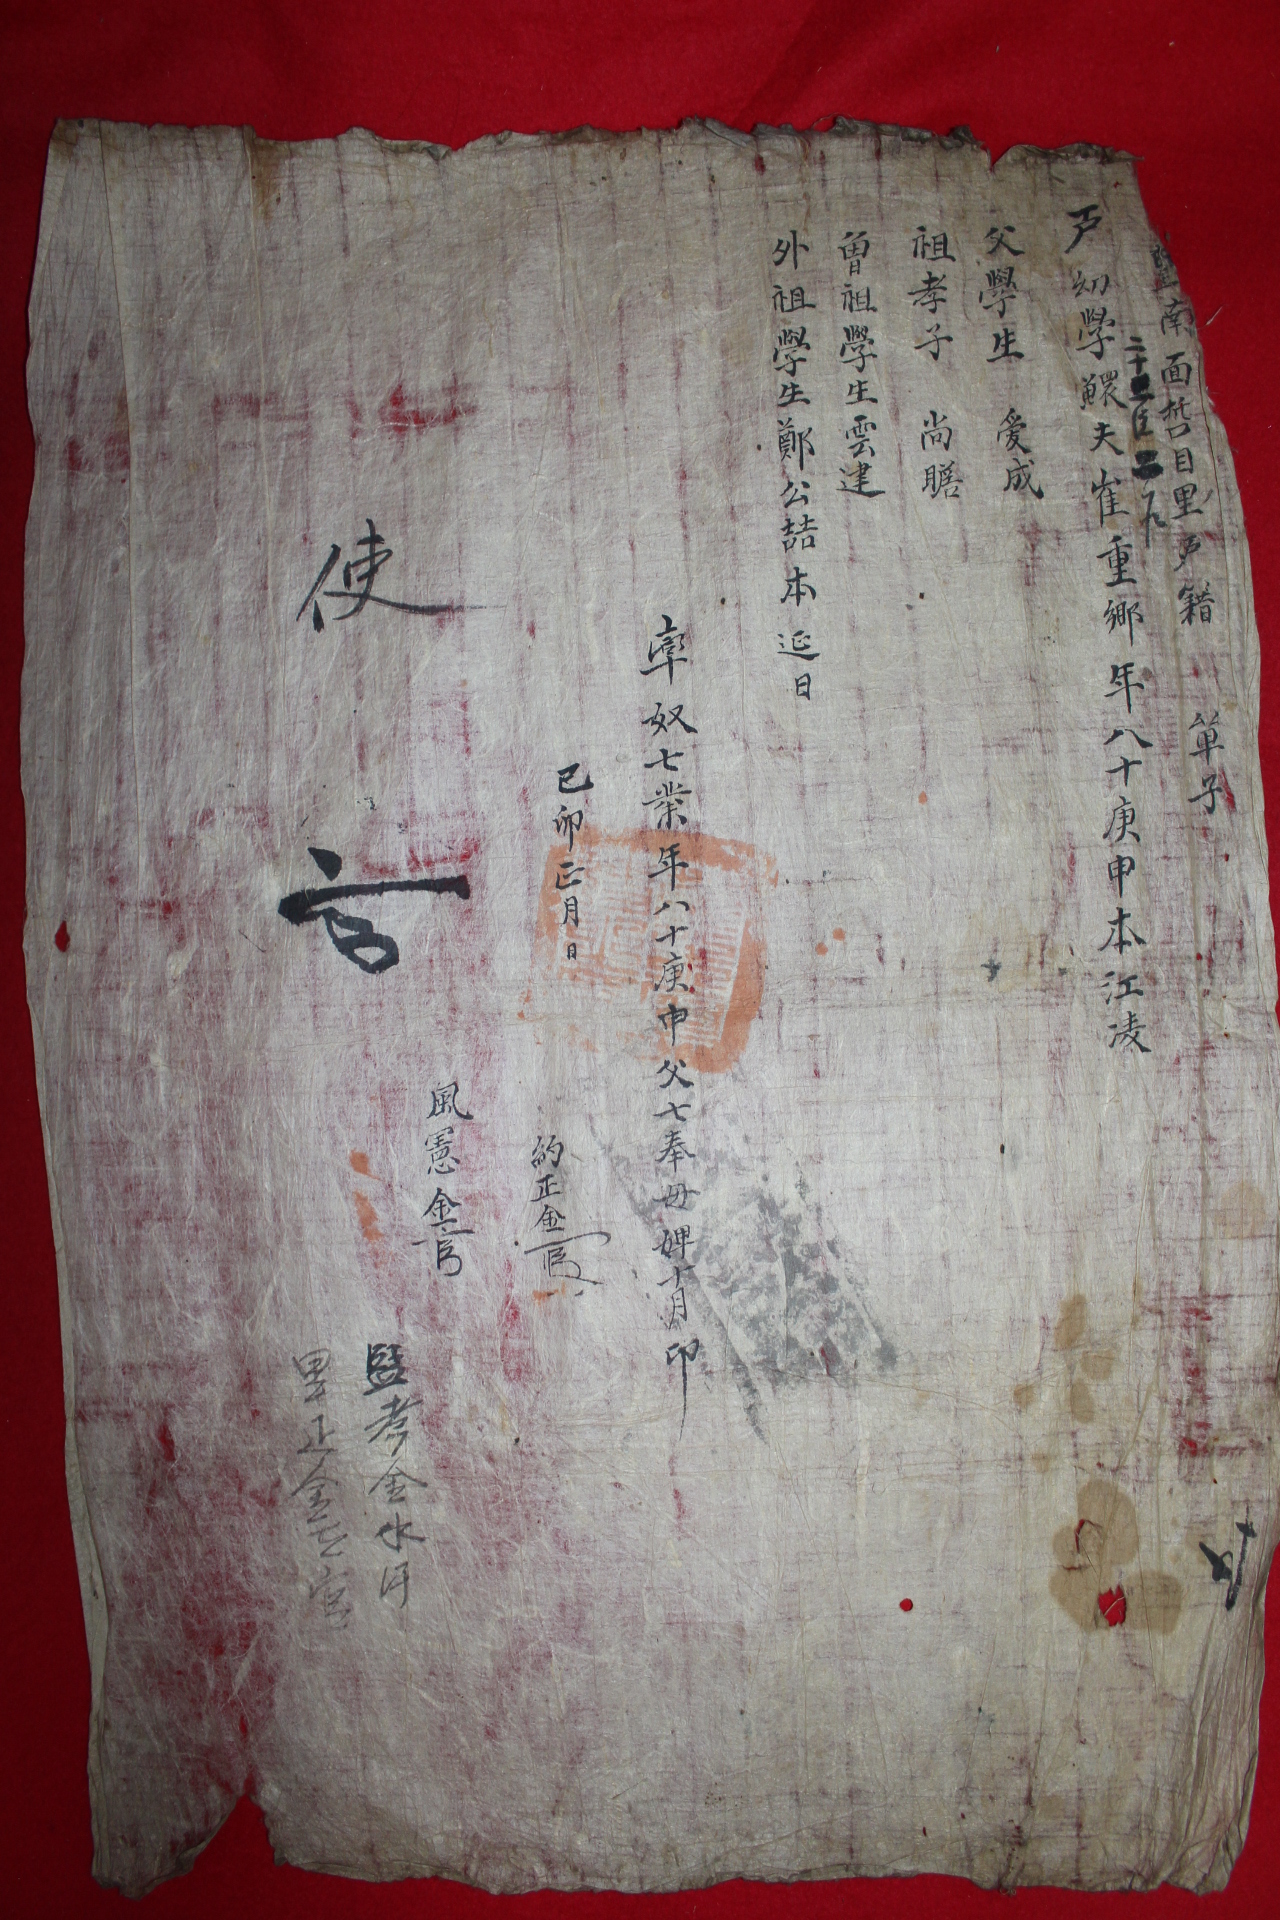 南面哲目里戶籍單子
二十四統二戶
戶幼學鰥夫崔重鄉年八十庚申本江凌
父學生 爰成
祖孝子 尚賸
曾祖學生雲建
外祖學生鄭公喆本延日
率奴七業年八十庚申父七奉母婢十月印
己卯正月日
約正金
風憲金
監考金水
里正金
使